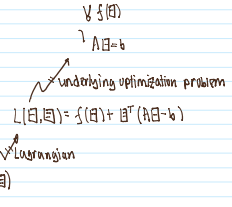 f(□)
A□=b
underlying optimization problem
L(□,□) = f(□) + □ᵀ(A□-b)
Lagrangian
□)